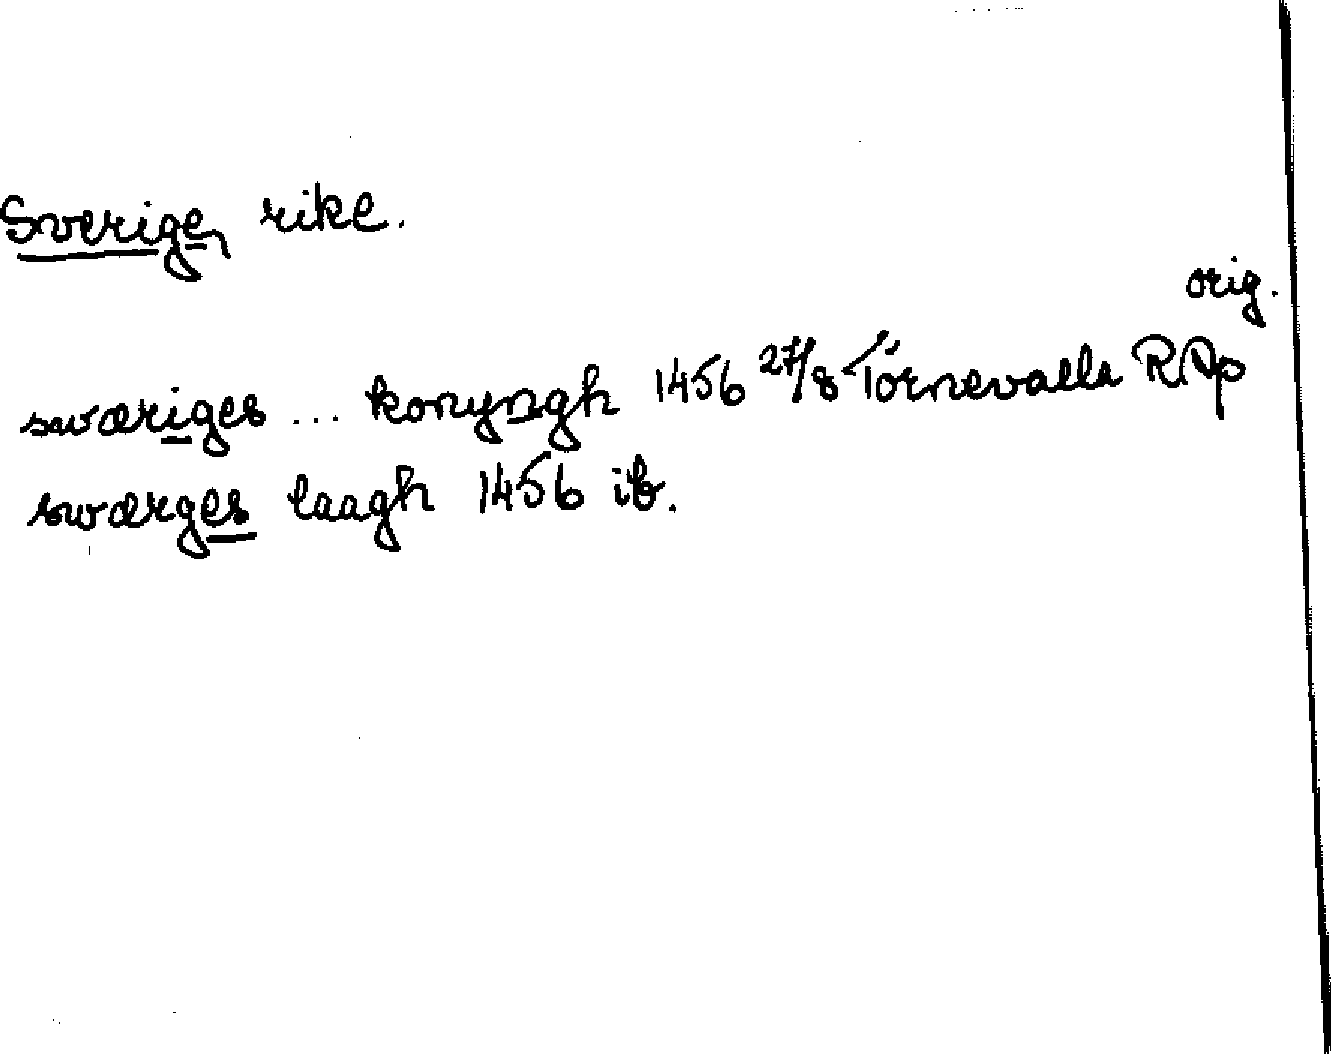 Sverige, rike.
orig.
swæriges ... konyngh 1456 27/8 Törnevalla RAp
swærges laagh 1456 ib.